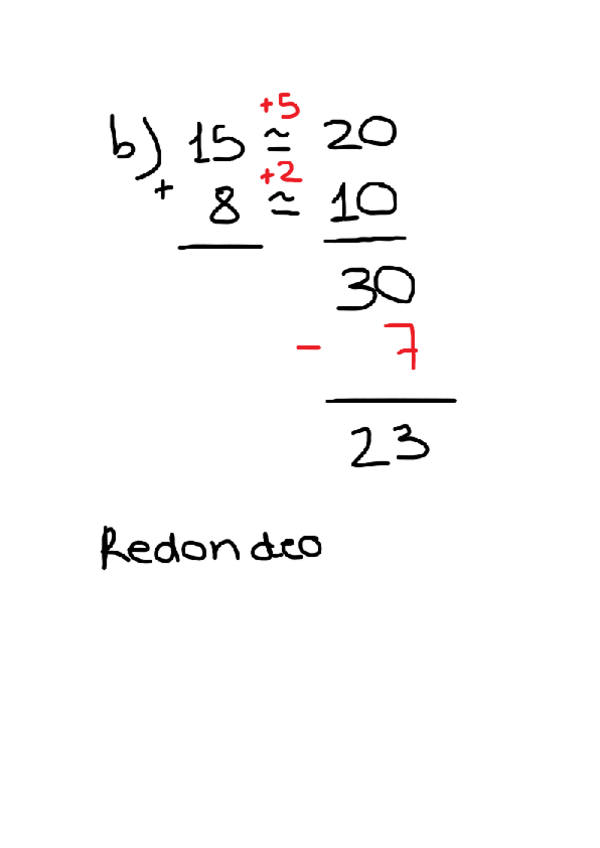 +5
b) 15 ≃ 20
+2
+ 8 ≃ 10
30
- 7
23
Redondeo